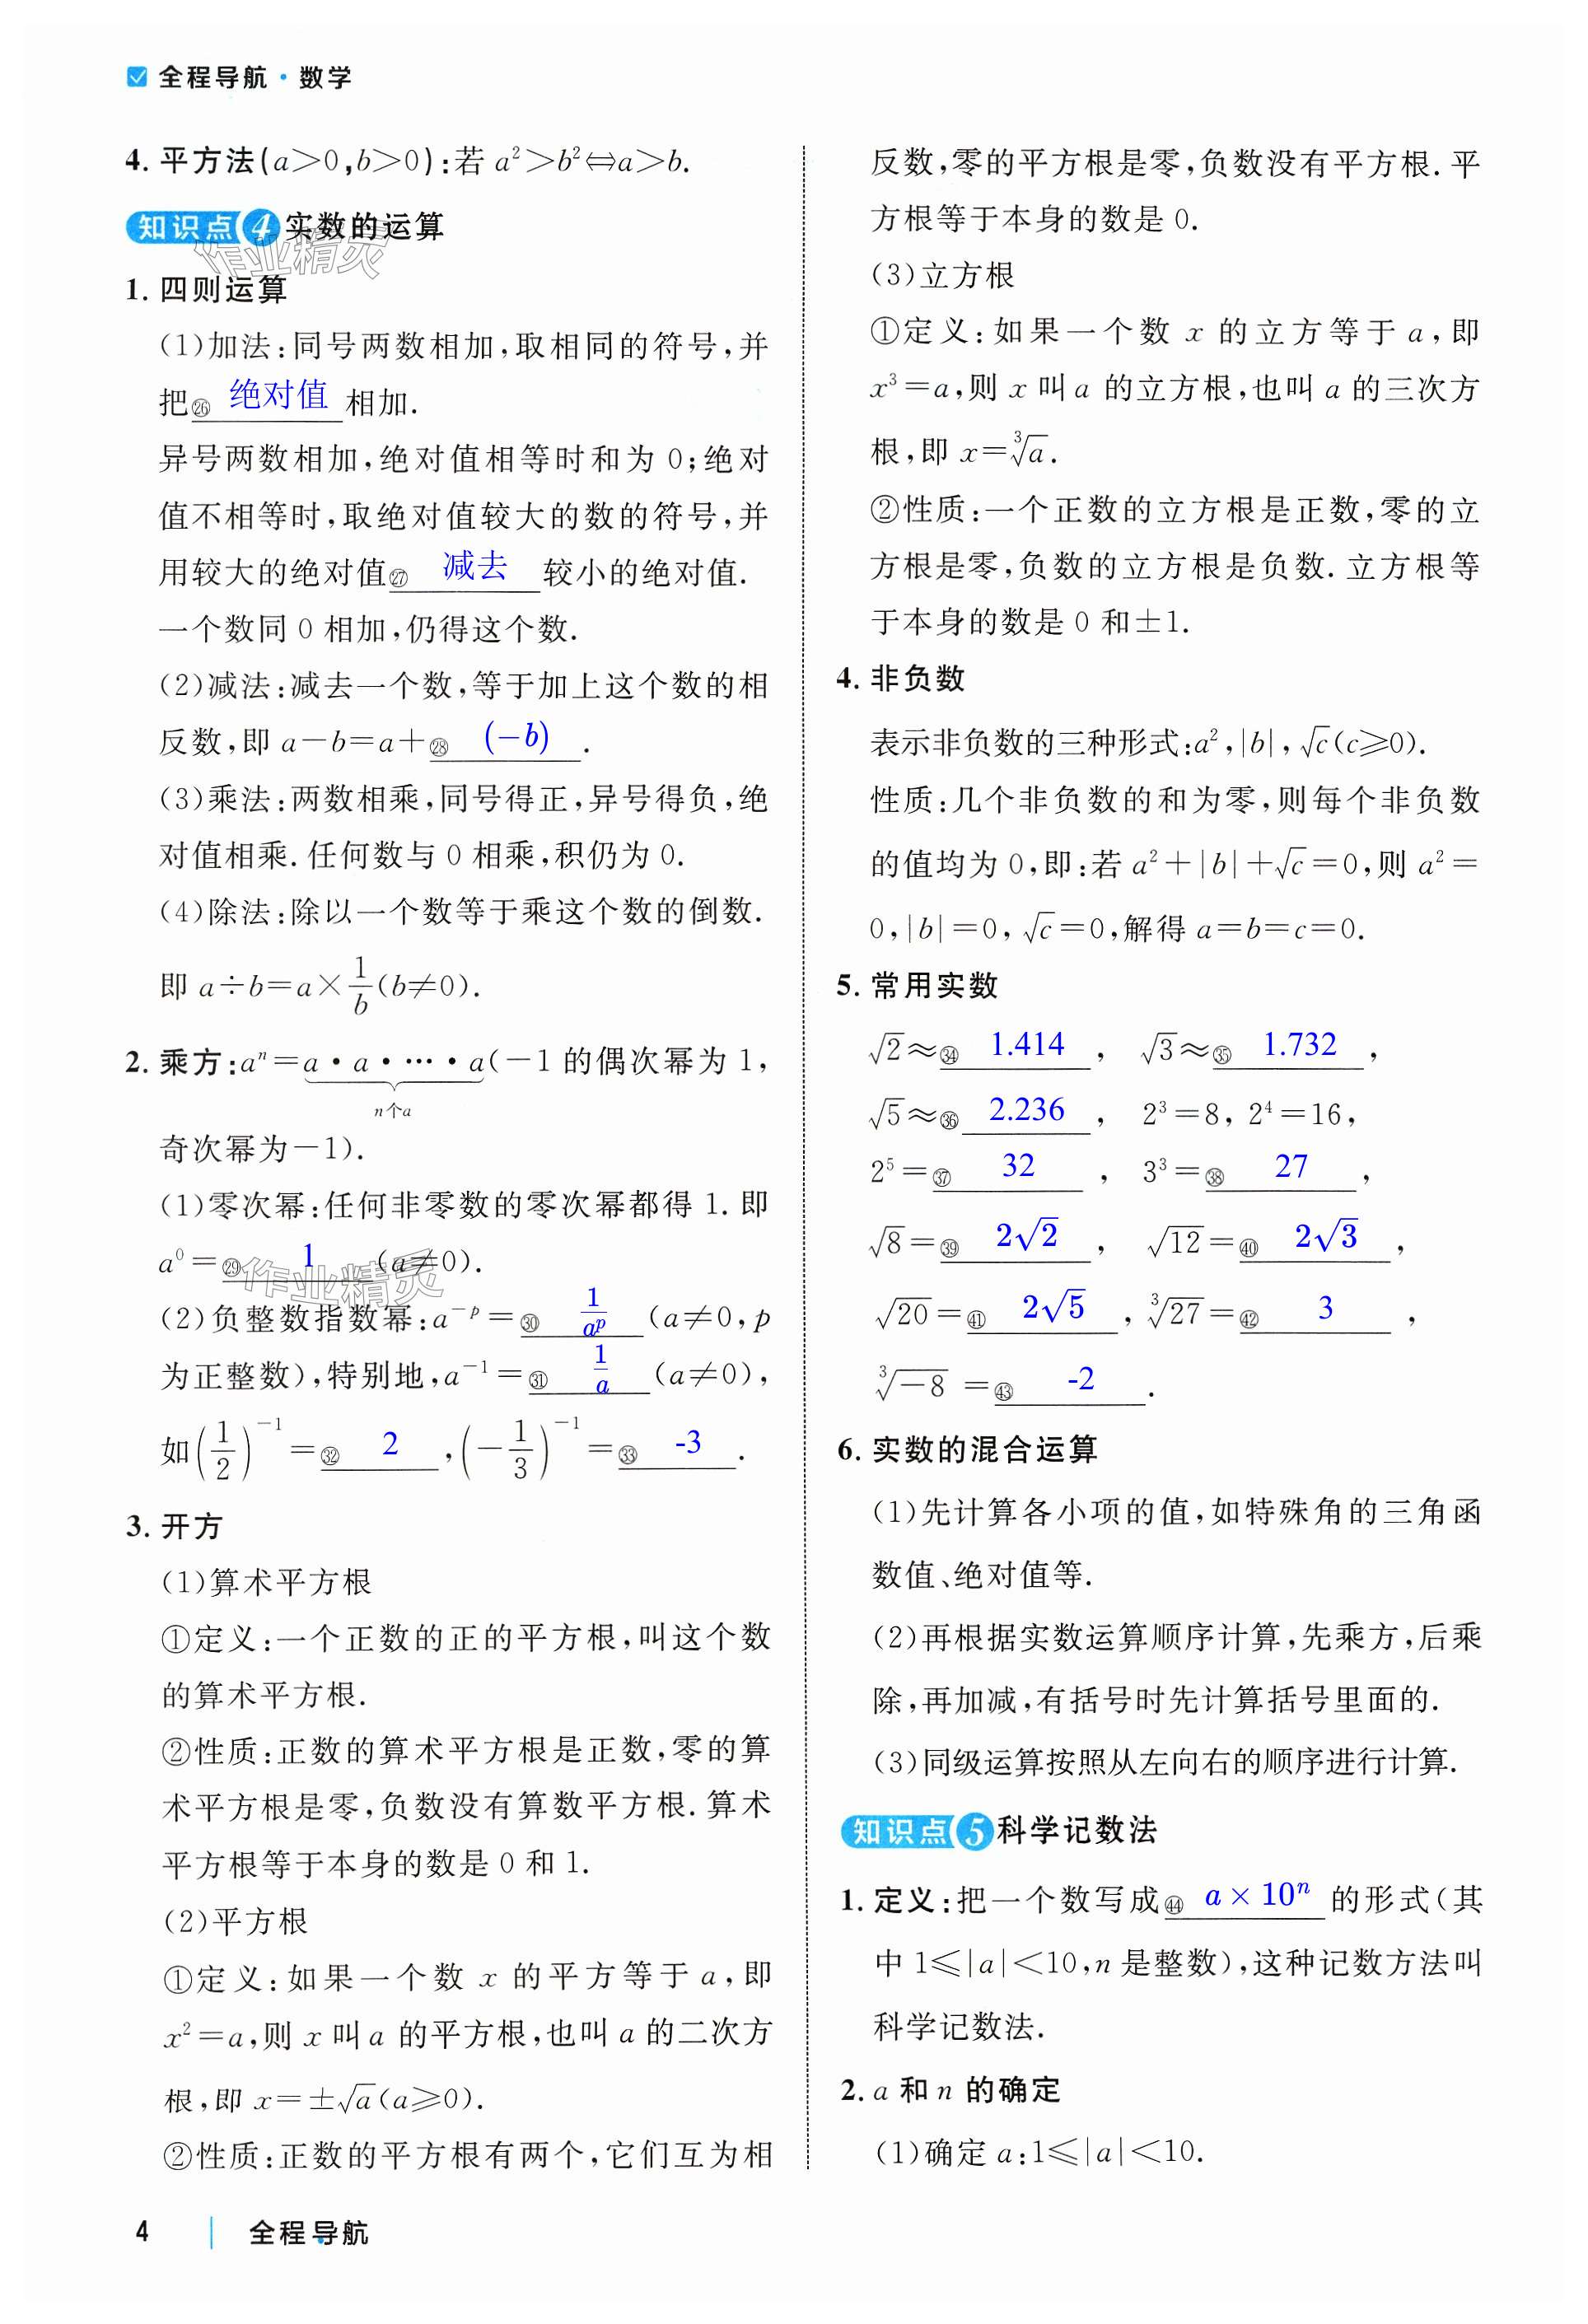 全程导航·数学
4. 平方法(a>0,b>0):若 a²>b²⇔a>b.
知识点4 实数的运算
作业精灵
1. 四则运算
(1)加法:同号两数相加,取相同的符号,并
把㉖ 绝对值 相加.
异号两数相加,绝对值相等时和为 0;绝对
值不相等时,取绝对值较大的数的符号,并
用较大的绝对值㉗ 减去 较小的绝对值.
一个数同 0 相加,仍得这个数.
(2)减法:减去一个数,等于加上这个数的相
反数,即 a-b=a+㉘ (-b) .
(3)乘法:两数相乘,同号得正,异号得负,绝
对值相乘.任何数与 0 相乘,积仍为 0.
(4)除法:除以一个数等于乘这个数的倒数.
即 a÷b=a×1/b(b≠0).
2. 乘方:aⁿ=a·a·…·a(-1 的偶次幂为 1,
n个a
奇次幂为-1).
(1)零次幂:任何非零数的零次幂都得 1.即
a⁰=㉙ 1 (a≠0).
作业精灵
(2)负整数指数幂:a⁻ᵖ=㉚ 1/aᵖ (a≠0,p
为正整数),特别地,a⁻¹=㉛ 1/a (a≠0),
如(1/2)⁻¹=㉜ 2 ,(-1/3)⁻¹=㉝ -3 .
3. 开方
(1)算术平方根
①定义:一个正数的正的平方根,叫这个数
的算术平方根.
②性质:正数的算术平方根是正数,零的算
术平方根是零,负数没有算数平方根.算术
平方根等于本身的数是 0 和 1.
(2)平方根
①定义:如果一个数 x 的平方等于 a,即
x²=a,则 x 叫 a 的平方根,也叫 a 的二次方
根,即 x=±√a(a≥0).
②性质:正数的平方根有两个,它们互为相
反数,零的平方根是零,负数没有平方根.平
方根等于本身的数是 0.
(3)立方根
①定义:如果一个数 x 的立方等于 a,即
x³=a,则 x 叫 a 的立方根,也叫 a 的三次方
根,即 x=∛a.
②性质:一个正数的立方根是正数,零的立
方根是零,负数的立方根是负数.立方根等
于本身的数是 0 和±1.
4. 非负数
表示非负数的三种形式:a²,|b|,√c(c≥0).
性质:几个非负数的和为零,则每个非负数
的值均为 0,即:若 a²+|b|+√c=0,则 a²=
0,|b|=0,√c=0,解得 a=b=c=0.
5. 常用实数
√2≈㉞ 1.414 , √3≈㉟ 1.732 ,
√5≈㊱ 2.236 , 2³=8, 2⁴=16,
2⁵=㊲ 32 , 3³=㊳ 27 ,
√8=㊴ 2√2 , √12=㊵ 2√3 ,
√20=㊶ 2√5 , ∛27=㊷ 3 ,
∛-8 =㊸ -2 .
6. 实数的混合运算
(1)先计算各小项的值,如特殊角的三角函
数值、绝对值等.
(2)再根据实数运算顺序计算,先乘方,后乘
除,再加减,有括号时先计算括号里面的.
(3)同级运算按照从左向右的顺序进行计算.
知识点5 科学记数法
1. 定义:把一个数写成㊹ a×10ⁿ 的形式(其
中 1≤|a|<10,n 是整数),这种记数方法叫
科学记数法.
2. a 和 n 的确定
(1)确定 a:1≤|a|<10.
4 | 全程导航